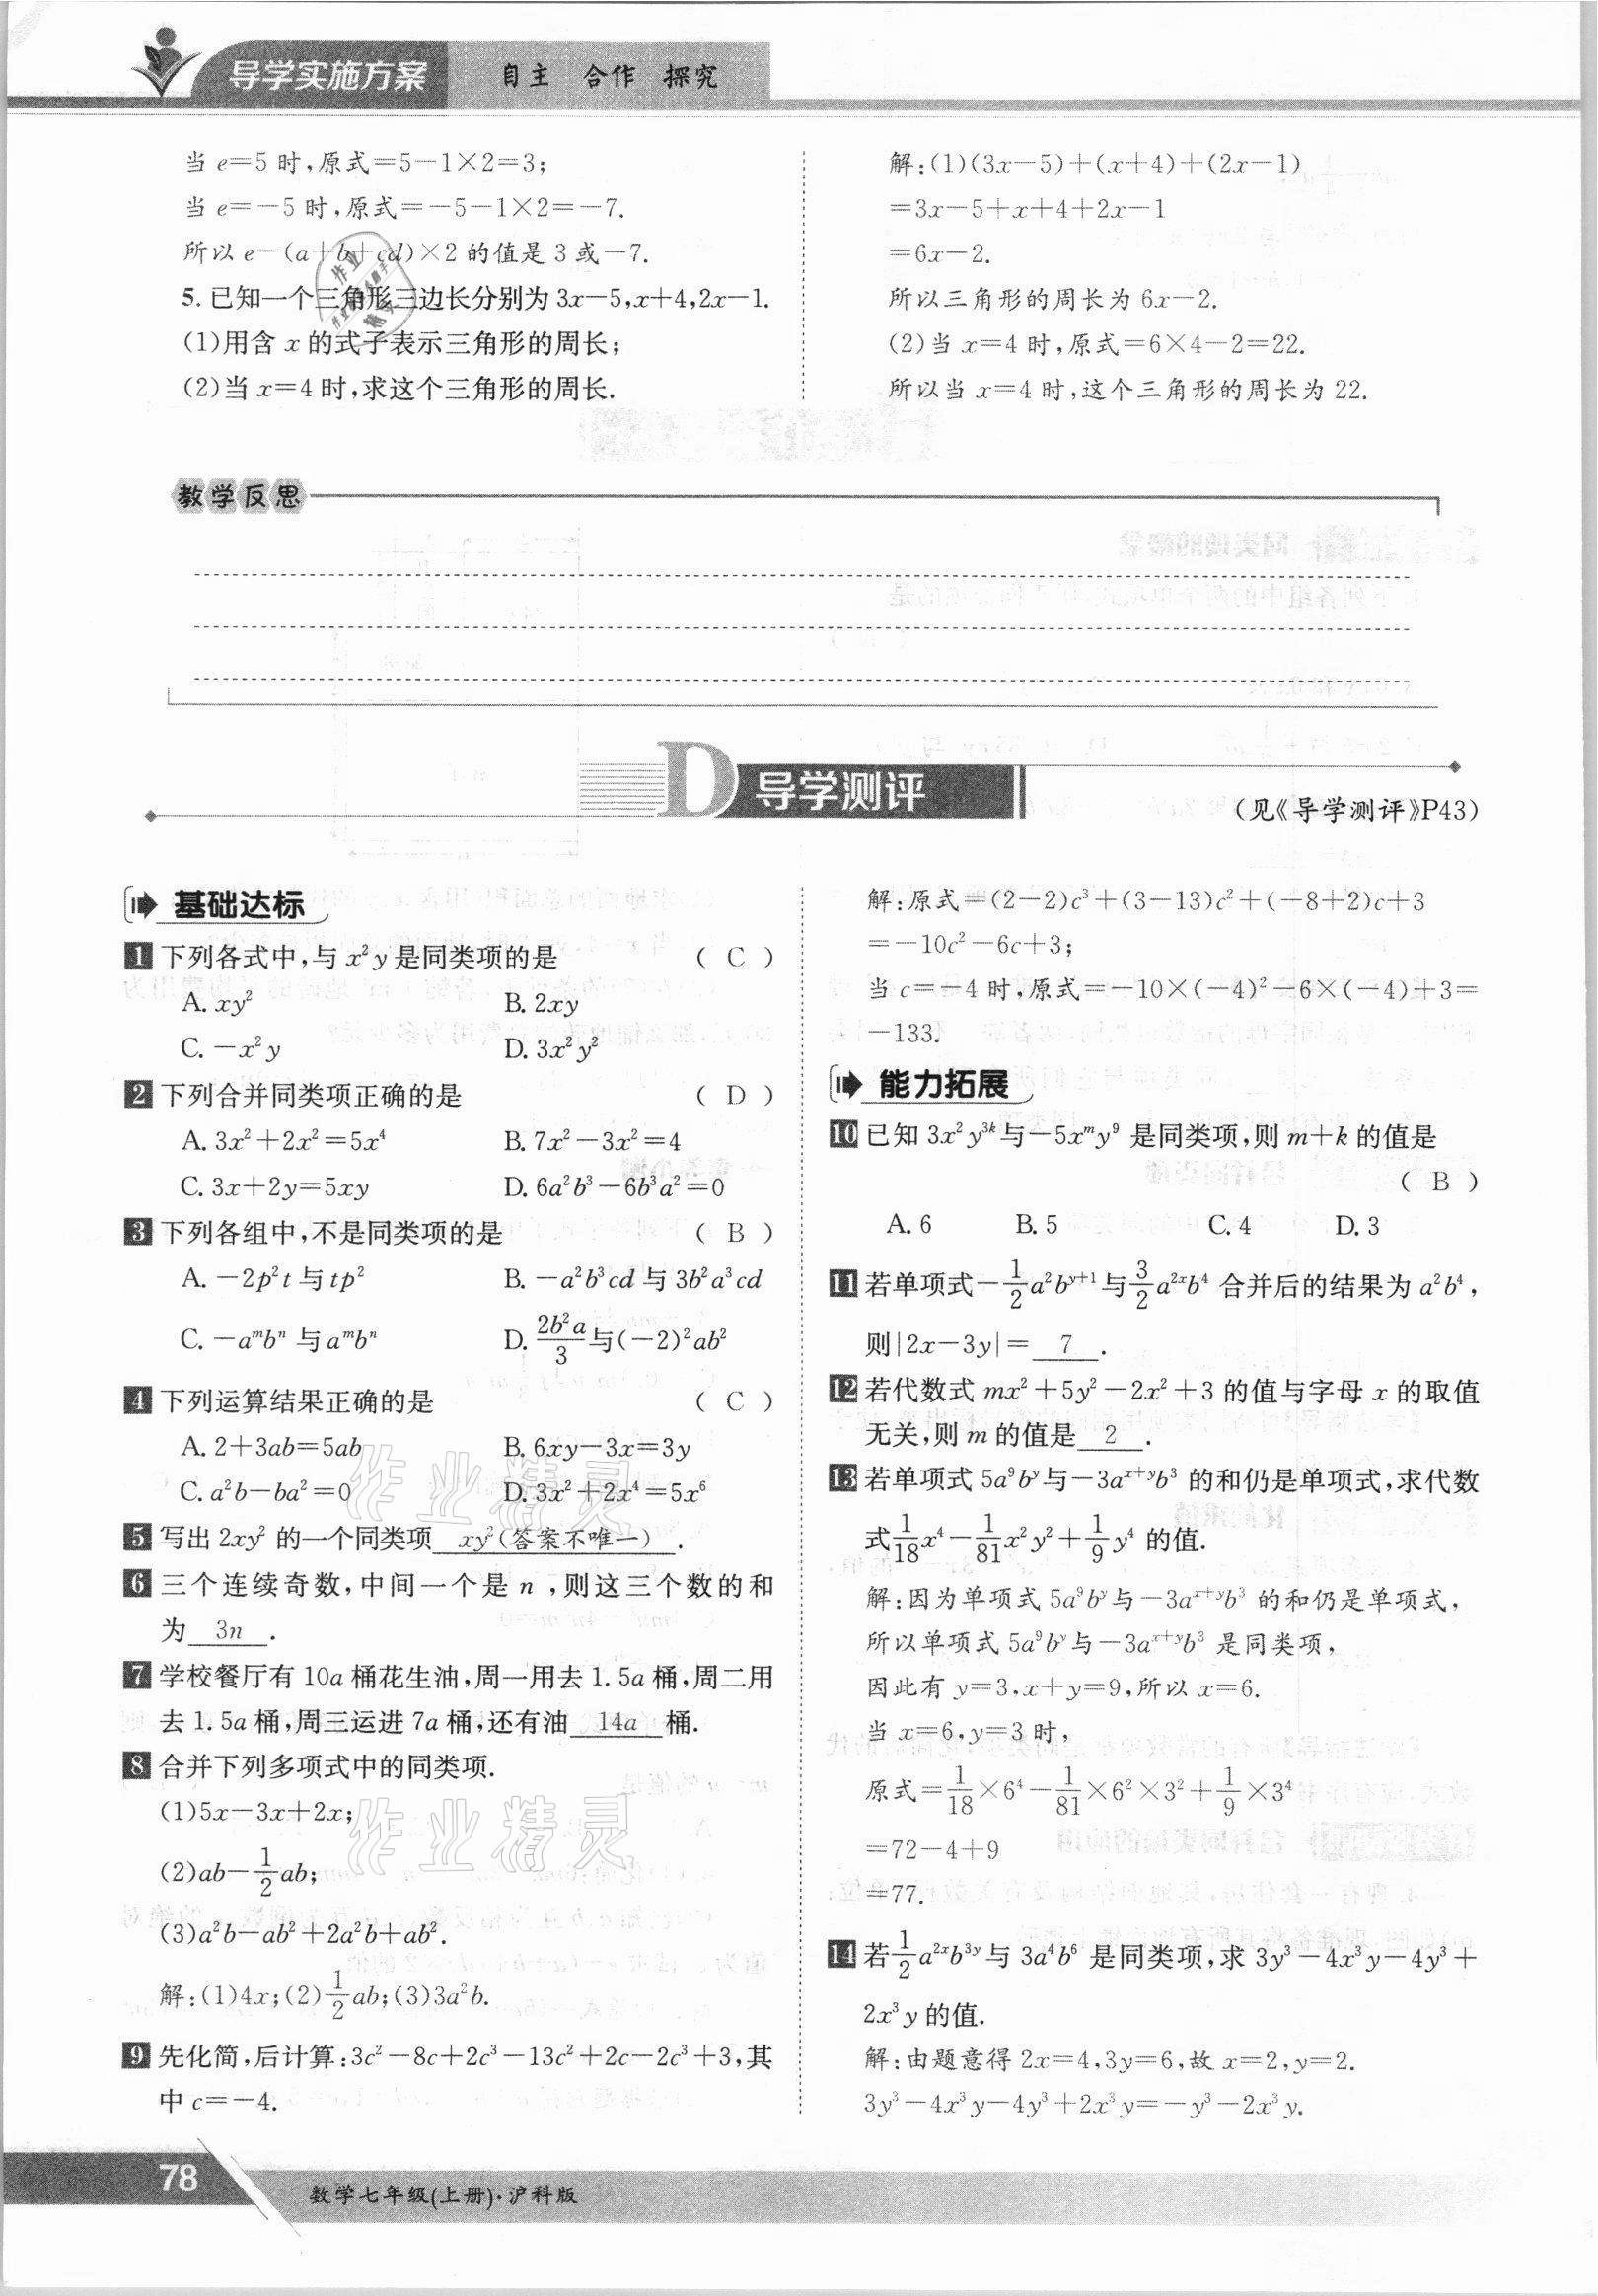 导学实施方案 自主 合作 探究
当 e=5 时,原式=5-1×2=3;
当 e=-5 时,原式=-5-1×2=-7.
所以 e-(a+b+cd)×2 的值是 3 或-7.
5. 已知一个三角形三边长分别为 3x-5,x+4,2x-1.
(1)用含 x 的式子表示三角形的周长;
(2)当 x=4 时,求这个三角形的周长.
解:(1)(3x-5)+(x+4)+(2x-1)
=3x-5+x+4+2x-1
=6x-2.
所以三角形的周长为 6x-2.
(2)当 x=4 时,原式=6×4-2=22.
所以当 x=4 时,这个三角形的周长为 22.
教学反思
D 导学测评
(见《导学测评》P43)
基础达标
1 下列各式中,与 x²y 是同类项的是 ( C )
A. xy² B. 2xy
C. -x²y D. 3x²y²
2 下列合并同类项正确的是 ( D )
A. 3x²+2x²=5x⁴ B. 7x²-3x²=4
C. 3x+2y=5xy D. 6a²b³-6b³a²=0
3 下列各组中,不是同类项的是 ( B )
A. -2p²t 与 tp² B. -a²b³cd 与 3b²a³cd
C. -aᵐbⁿ 与 aᵐbⁿ D. 2b²a/3 与(-2)²ab²
4 下列运算结果正确的是 ( C )
A. 2+3ab=5ab B. 6xy-3x=3y
C. a²b-ba²=0 D. 3x²+2x⁴=5x⁶
5 写出 2xy² 的一个同类项 xy²(答案不唯一) .
6 三个连续奇数,中间一个是 n ,则这三个数的和
为 3n .
7 学校餐厅有 10a 桶花生油,周一用去 1.5a 桶,周二用
去 1.5a 桶,周三运进 7a 桶,还有油 14a 桶.
8 合并下列多项式中的同类项.
(1)5x-3x+2x;
(2)ab-1/2ab;
(3)a²b-ab²+2a²b+ab².
解:(1)4x;(2)1/2ab;(3)3a²b.
9 先化简,后计算:3c²-8c+2c³-13c²+2c-2c³+3,其
中 c=-4.
解:原式=(2-2)c³+(3-13)c²+(-8+2)c+3
=-10c²-6c+3;
当 c=-4 时,原式=-10×(-4)²-6×(-4)+3=
-133.
能力拓展
10 已知 3x²y³ᵏ与-5xᵐy⁹ 是同类项,则 m+k 的值是
( B )
A. 6 B. 5 C. 4 D. 3
11 若单项式-1/2a²bʸ⁺¹与3/2a²ˣb⁴ 合并后的结果为 a²b⁴,
则|2x-3y|= 7 .
12 若代数式 mx²+5y²-2x²+3 的值与字母 x 的取值
无关,则 m 的值是 2 .
13 若单项式 5a⁹bʸ与-3aˣ⁺ʸb³ 的和仍是单项式,求代数
式1/18x⁴-1/81x²y²+1/9y⁴ 的值.
解:因为单项式 5a⁹bʸ与-3aˣ⁺ʸb³ 的和仍是单项式,
所以单项式 5a⁹bʸ与-3aˣ⁺ʸb³ 是同类项,
因此有 y=3,x+y=9,所以 x=6.
当 x=6,y=3 时,
原式=1/18×6⁴-1/81×6²×3²+1/9×3⁴
=72-4+9
=77.
14 若1/2a²ˣb³ʸ与 3a⁴b⁶ 是同类项,求 3y³-4x³y-4y³+
2x³y 的值.
解:由题意得 2x=4,3y=6,故 x=2,y=2.
3y³-4x³y-4y³+2x³y=-y³-2x³y.
作业精灵
作业精灵
78 数学七年级(上册)·沪科版